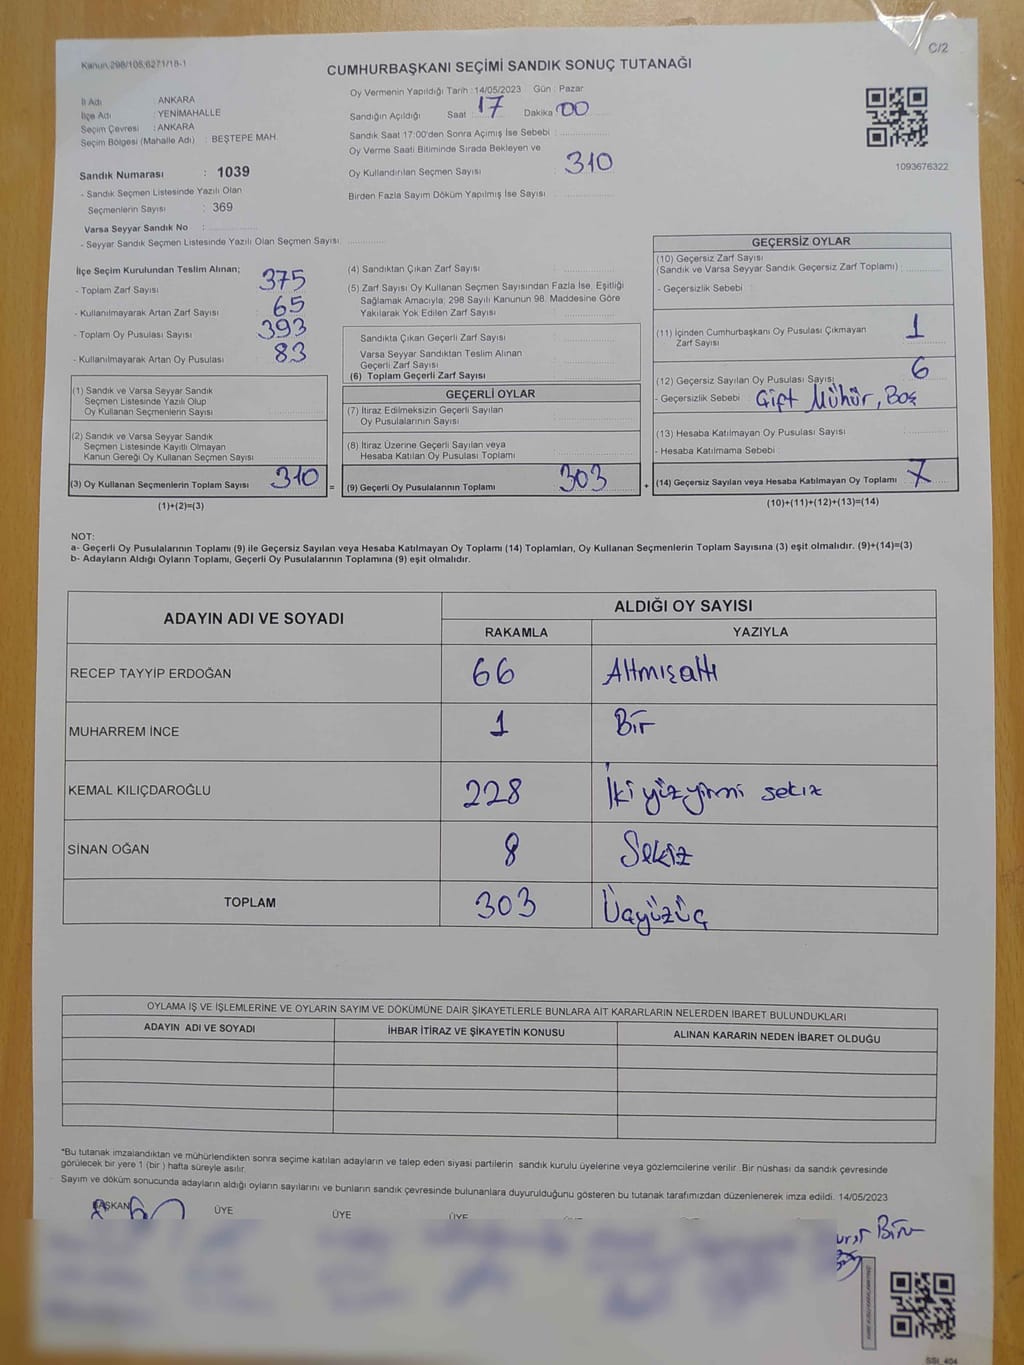 Kanun:298/105;6271/18-1
C/2
CUMHURBAŞKANI SEÇİMİ SANDIK SONUÇ TUTANAĞI
İl Adı ANKARA
İlçe Adı : YENİMAHALLE
Seçim Çevresi : ANKARA
Seçim Bölgesi (Mahalle Adı) : BEŞTEPE MAH.
Sandık Numarası : 1039
- Sandık Seçmen Listesinde Yazılı Olan
Seçmenlerin Sayısı : 369
Varsa Seyyar Sandık No :
- Seyyar Sandık Seçmen Listesinde Yazılı Olan Seçmen Sayısı:
Oy Vermenin Yapıldığı Tarih : 14/05/2023 Gün : Pazar
Sandığın Açıldığı Saat : 17 Dakika 00
Sandık Saat 17:00'den Sonra Açımış İse Sebebi :
Oy Verme Saati Bitiminde Sırada Bekleyen ve
Oy Kullandırılan Seçmen Sayısı : 310
Birden Fazla Sayım Döküm Yapılmış İse Sayısı :
1093676322
İlçe Seçim Kurulundan Teslim Alınan;
- Toplam Zarf Sayısı : 375
- Kullanılmayarak Artan Zarf Sayısı : 65
- Toplam Oy Pusulası Sayısı : 393
- Kullanılmayarak Artan Oy Pusulası : 83
(1) Sandık ve Varsa Seyyar Sandık
Seçmen Listesinde Yazılı Olup
Oy Kullanan Seçmenlerin Sayısı
(2) Sandık ve Varsa Seyyar Sandık
Seçmen Listesinde Kayıtlı Olmayan
Kanun Gereği Oy Kullanan Seçmen Sayısı
(3) Oy Kullanan Seçmenlerin Toplam Sayısı 310
(1)+(2)=(3)
(4) Sandıktan Çıkan Zarf Sayısı :
(5) Zarf Sayısı Oy Kullanan Seçmen Sayısından Fazla İse, Eşitliği
Sağlamak Amacıyla; 298 Sayılı Kanunun 98. Maddesine Göre
Yakılarak Yok Edilen Zarf Sayısı :
Sandıkta Çıkan Geçerli Zarf Sayısı
Varsa Seyyar Sandıktan Teslim Alınan
Geçerli Zarf Sayısı
(6) Toplam Geçerli Zarf Sayısı
GEÇERLİ OYLAR
(7) İtiraz Edilmeksizin Geçerli Sayılan
Oy Pusulalarının Sayısı
(8) İtiraz Üzerine Geçerli Sayılan veya
Hesaba Katılan Oy Pusulası Toplamı
= (9) Geçerli Oy Pusulalarının Toplamı 303
+
GEÇERSİZ OYLAR
(10) Geçersiz Zarf Sayısı
(Sandık ve Varsa Seyyar Sandık Geçersiz Zarf Toplamı) :
- Geçersizlik Sebebi :
(11) İçinden Cumhurbaşkanı Oy Pusulası Çıkmayan
Zarf Sayısı 1
(12) Geçersiz Sayılan Oy Pusulası Sayısı 6
- Geçersizlik Sebebi : Çift Mühür, Boş
(13) Hesaba Katılmayan Oy Pusulası Sayısı
- Hesaba Katılmama Sebebi :
(14) Geçersiz Sayılan veya Hesaba Katılmayan Oy Toplamı 7
(10)+(11)+(12)+(13)=(14)
NOT:
a- Geçerli Oy Pusulalarının Toplamı (9) ile Geçersiz Sayılan veya Hesaba Katılmayan Oy Toplamı (14) Toplamları, Oy Kullanan Seçmenlerin Toplam Sayısına (3) eşit olmalıdır. (9)+(14)=(3)
b- Adayların Aldığı Oyların Toplamı, Geçerli Oy Pusulalarının Toplamına (9) eşit olmalıdır.
ADAYIN ADI VE SOYADI ALDIĞI OY SAYISI
RAKAMLA YAZIYLA
RECEP TAYYİP ERDOĞAN 66 Altmışaltı
MUHARREM İNCE 1 Bir
KEMAL KILIÇDAROĞLU 228 İki yüzyirmi sekiz
SİNAN OĞAN 8 Sekiz
TOPLAM 303 Üçyüzüç
OYLAMA İŞ VE İŞLEMLERİNE VE OYLARIN SAYIM VE DÖKÜMÜNE DAİR ŞİKAYETLERLE BUNLARA AİT KARARLARIN NELERDEN İBARET BULUNDUKLARI
ADAYIN ADI VE SOYADI İHBAR İTİRAZ VE ŞİKAYETİN KONUSU ALINAN KARARIN NEDEN İBARET OLDUĞU
*Bu tutanak imzalandıktan ve mühürlendikten sonra seçime katılan adayların ve talep eden siyasi partilerin sandık kurulu üyelerine veya gözlemcilerine verilir. Bir nüshası da sandık çevresinde
görülecek bir yere 1 (bir ) hafta süreyle asılır.
Sayım ve döküm sonucunda adayların aldığı oyların sayılarını ve bunların sandık çevresinde bulunanlara duyurulduğunu gösteren bu tutanak tarafımızdan düzenlenerek imza edildi. 14/05/2023
BAŞKAN ÜYE ÜYE ÜYE